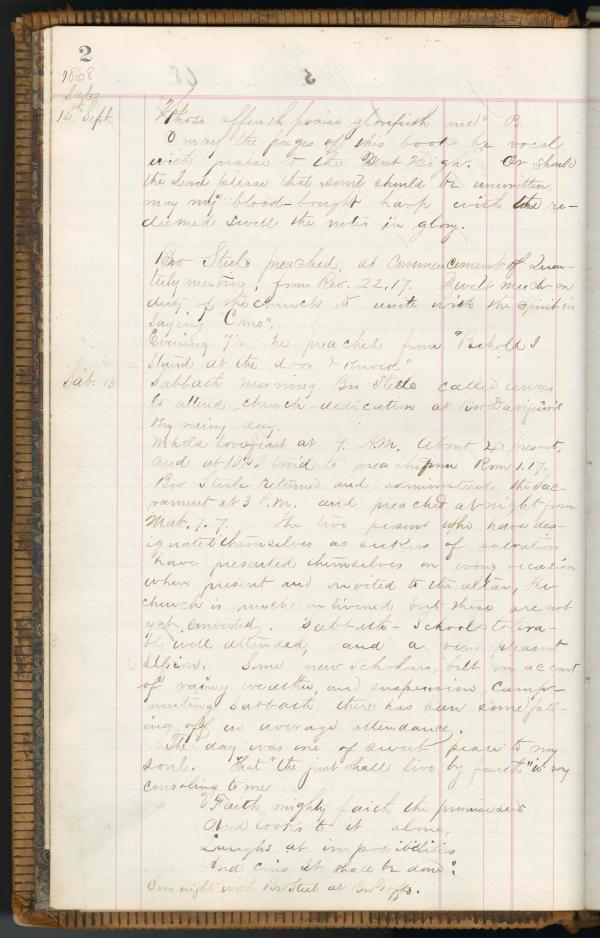 2
1868
12th Sept.
"Whoso offereth praise glorifieth me" Ps.
O may the pages of this book be vocal
with praise to the Most High. Or should
the Lord please that some should be unwritten
may my blood-bought harp with the re-
deemed swell the notes in glory.
Bro Steele preached, at commencement of Quar-
terly meeting, from Rev. 22.17. Dwelt much on
duty of the church to unite with the Spirit in
saying "Come".
Evening 7½ he preached from "Behold I
stand at the door & knock"
Sab. 13
Sabbath morning Bro Steele called away
to attend church-dedication at Bro
very rainy day.
We held lovefeast at 9 A.M. about 20 present,
and at 10½ I tried to preach from Rom 1.17.
Bro Steele returned and administered the sac-
rament at 3 P.M. and preached at night from
Mat. 7. 7. The two persons who have des-
ignated themselves as seekers of salvation
have presented themselves on every occasion
when present and invited to the altar, the
church is much enlivened but these are not
yet converted. Sabbath-School tolera-
bly well attended, and a very pleasant
session. Some new scholars, but on account
of rainy weather, and suspension camp-
meeting Sabbath there has been some fall-
ing off in average attendance.
The day was one of sweet peace to my
soul. That "the just shall live by faith" is very
consoling to me
"Faith, mighty faith the promise sees
And looks to it alone,
Laughs at impossibilities
And cries it shall be done".
Over night with Bro Steel at Bro